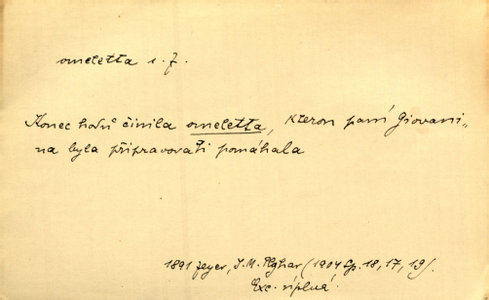 omeletta s. f.
Konec hodů činila omeletta, kterou paní Giovani„
na byla připravovati pomáhala
1891 Zeyer, J. M. Plojhar (1904 Sp. 18, 17, 19).
Exc. úplná.